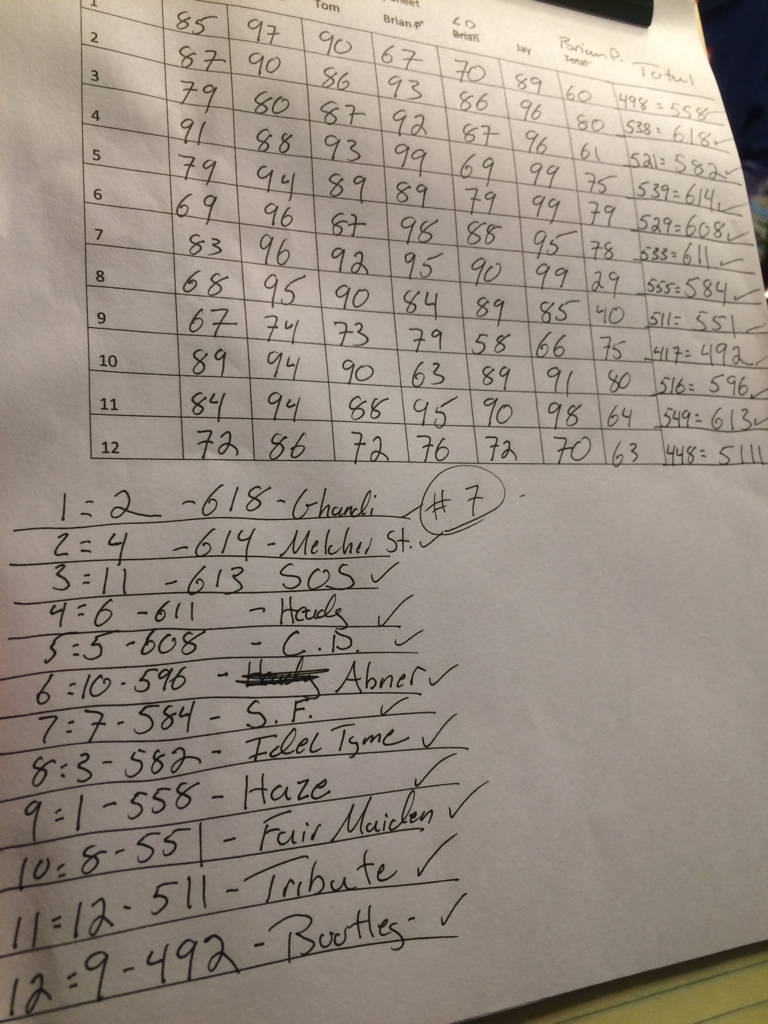 Tom Brian P CD Brian Jay Brian P. Total Total
1 85 97 90 67 70 89 60 498=558 ✓
2 87 90 86 93 86 96 80 538=618 ✓
3 79 80 87 92 87 96 61 521=582 ✓
4 91 88 93 99 69 99 75 539=614 ✓
5 79 94 89 89 79 99 79 529=608 ✓
6 69 96 87 98 88 95 78 533=611 ✓
7 83 96 92 95 90 99 29 555=584 ✓
8 68 95 90 84 89 85 40 511=551 ✓
9 67 74 73 79 58 66 75 417=492 ✓
10 89 94 90 63 89 91 80 516=596 ✓
11 84 94 88 95 90 98 64 549=613 ✓
12 72 86 72 76 72 70 63 448=511
1=2 -618-Ghandi #7
2=4 -614-Melcher St. ✓
3=11 -613 SOS ✓
4=6 -611 - Heady ✓
5=5-608 - C.D. ✓
6=10-596 - Abner ✓
7=7-584- S.F. ✓
8=3-582- Idel Tyme ✓
9=1-558-Haze ✓
10=8-551-Fair Maiden ✓
11=12-511-Tribute ✓
12=9-492-Bootleg- ✓